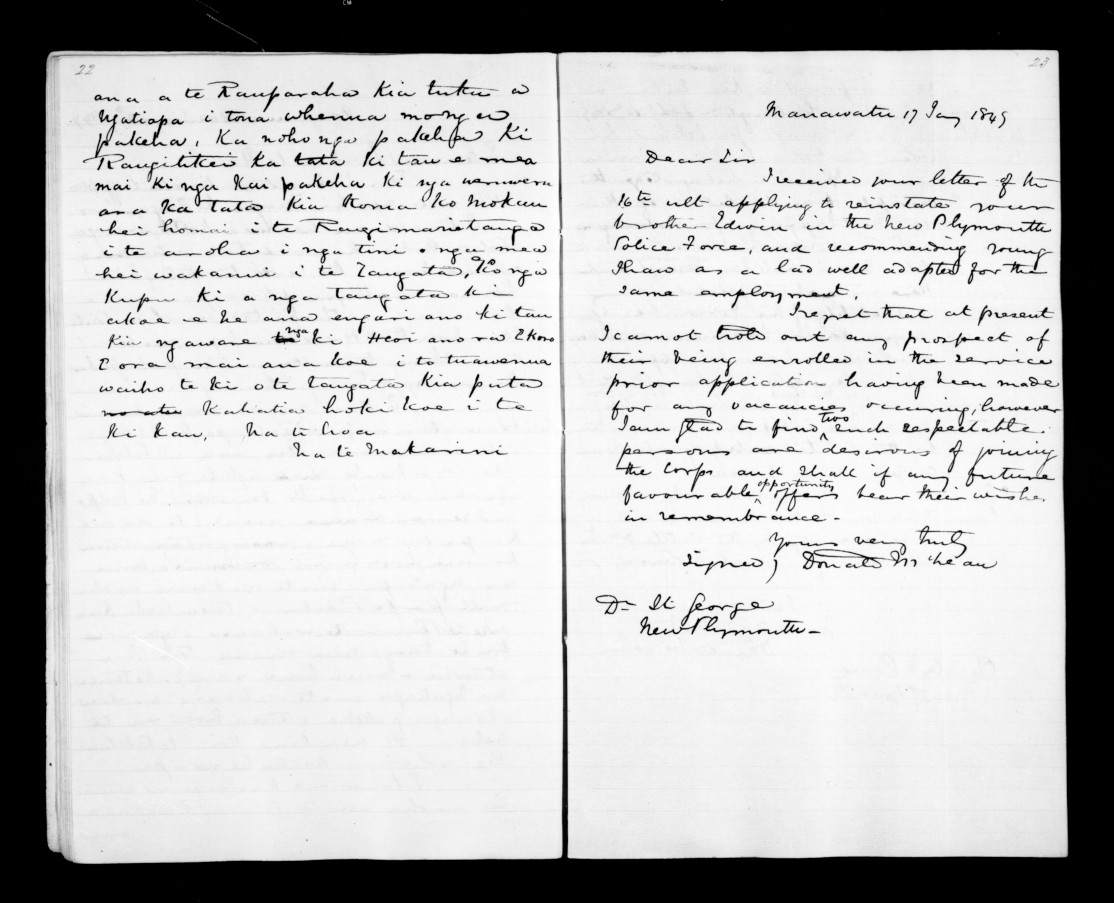 22
ana a te Rauparaha Kia tuku a
Ngatiapa i tona whenua mo nga
pakeha, Ka noho nga pakeha Ki
Rangitikei ka tata ki tau e mea
mai Ki nga Kai pakeha Ki nga weruweru
ana Ka tata Kia Korua ko Mokau
hei homai i te Rangimarietanga
i te aroha i nga tini o nga mea
hei wakanui i te Tangata, Ko nga
Kupu Ki a nga tangata ki
akoe e he ana engari ano ki tau
Kia ngaware nga ki Heoi ano ra E koro
E ora mai ana koe i to tuawenua
waiho te ki o te Tangata Kia puta
Kahatia hoki Koe i te
Ki Kau, Na to hoa
Na te Makarini
23
Manawatu 17 Jany 1849
Dear Sir
I received your letter of the
16th ult applying to reinstate your
brother Edwin in the New Plymouth
Police Force, and recommending young
Shaw as a lad well adapted for the
same employment.
I regret that at present
I cannot hold out any prospect of
their being enrolled in the service
prior application having been made
for any vacancies occuring, however
I am glad to find two such respectable
persons are desirous of joining
the Corps and shall if any future
favourable opportunity offers bear their wishes
in remembrance -
Yours very truly
Signed) Donald McLean
Dr St George
New Plymouth -